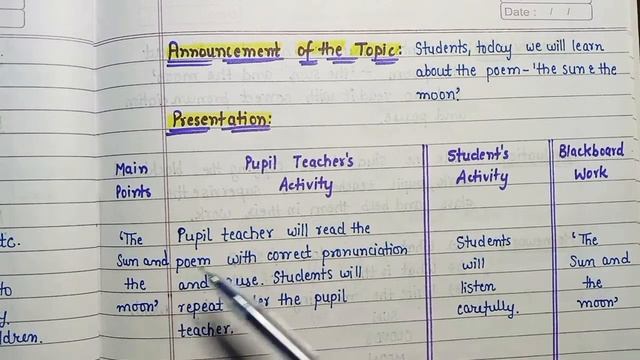 Date : / /
Announcement of the Topic: Students, today we will learn
about the poem - 'the sun & the
moon'.
Presentation:
Main Points
Pupil Teacher's Activity
Student's Activity
Blackboard Work
'The
Sun and
the
moon'
Pupil teacher will read the
poem with correct pronunciation
and Students will
repeat the pupil
teacher.
Students
will
listen
carefully.
'The
Sun and
the
moon'
etc.
to